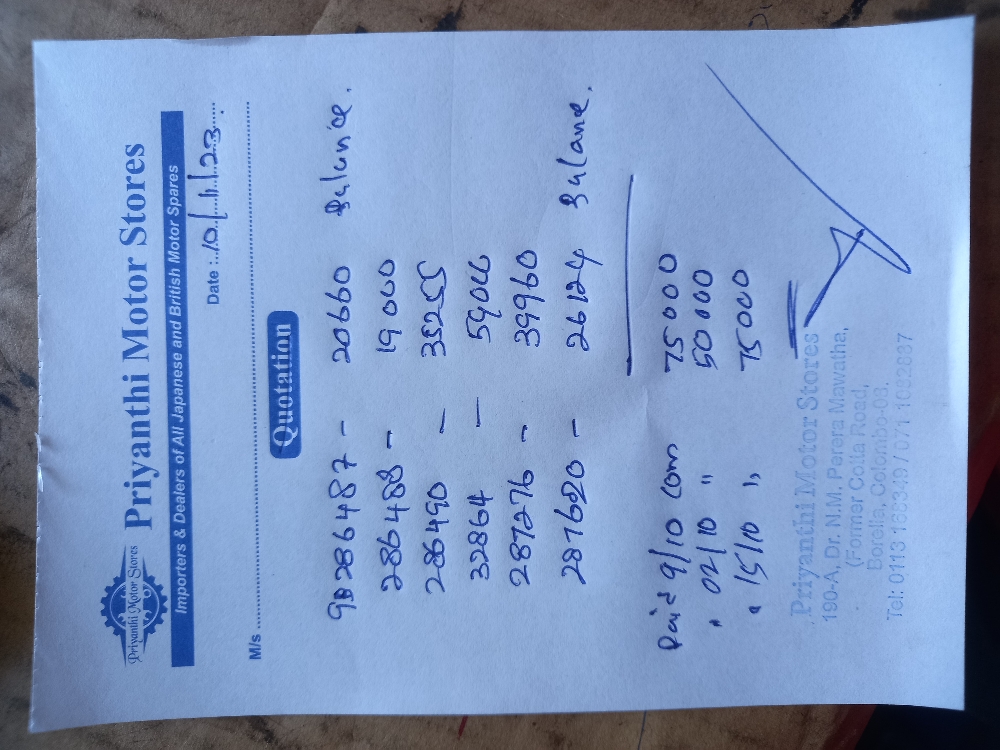 Priyanthi Motor Stores
Priyanthi Motor Stores
Importers & Dealers of All Japanese and British Motor Spares
Date : 10/11/23
M/s
Quotation
286487 - 20660 Balance.
286488 - 19000
286490 - 35255
32864 -
287276 - 39960
287620 - 26124 Balance.
Paid 9/10 Com 75000
" 02/10 " 50000
" 15/10 " 75000
Priyanthi Motor Stores
190-A, Dr. N.M. Perera Mawatha,
(Former Cotta Road,
Borella, Colombo-08.
Tel: 0113 168349 / 071 1082837